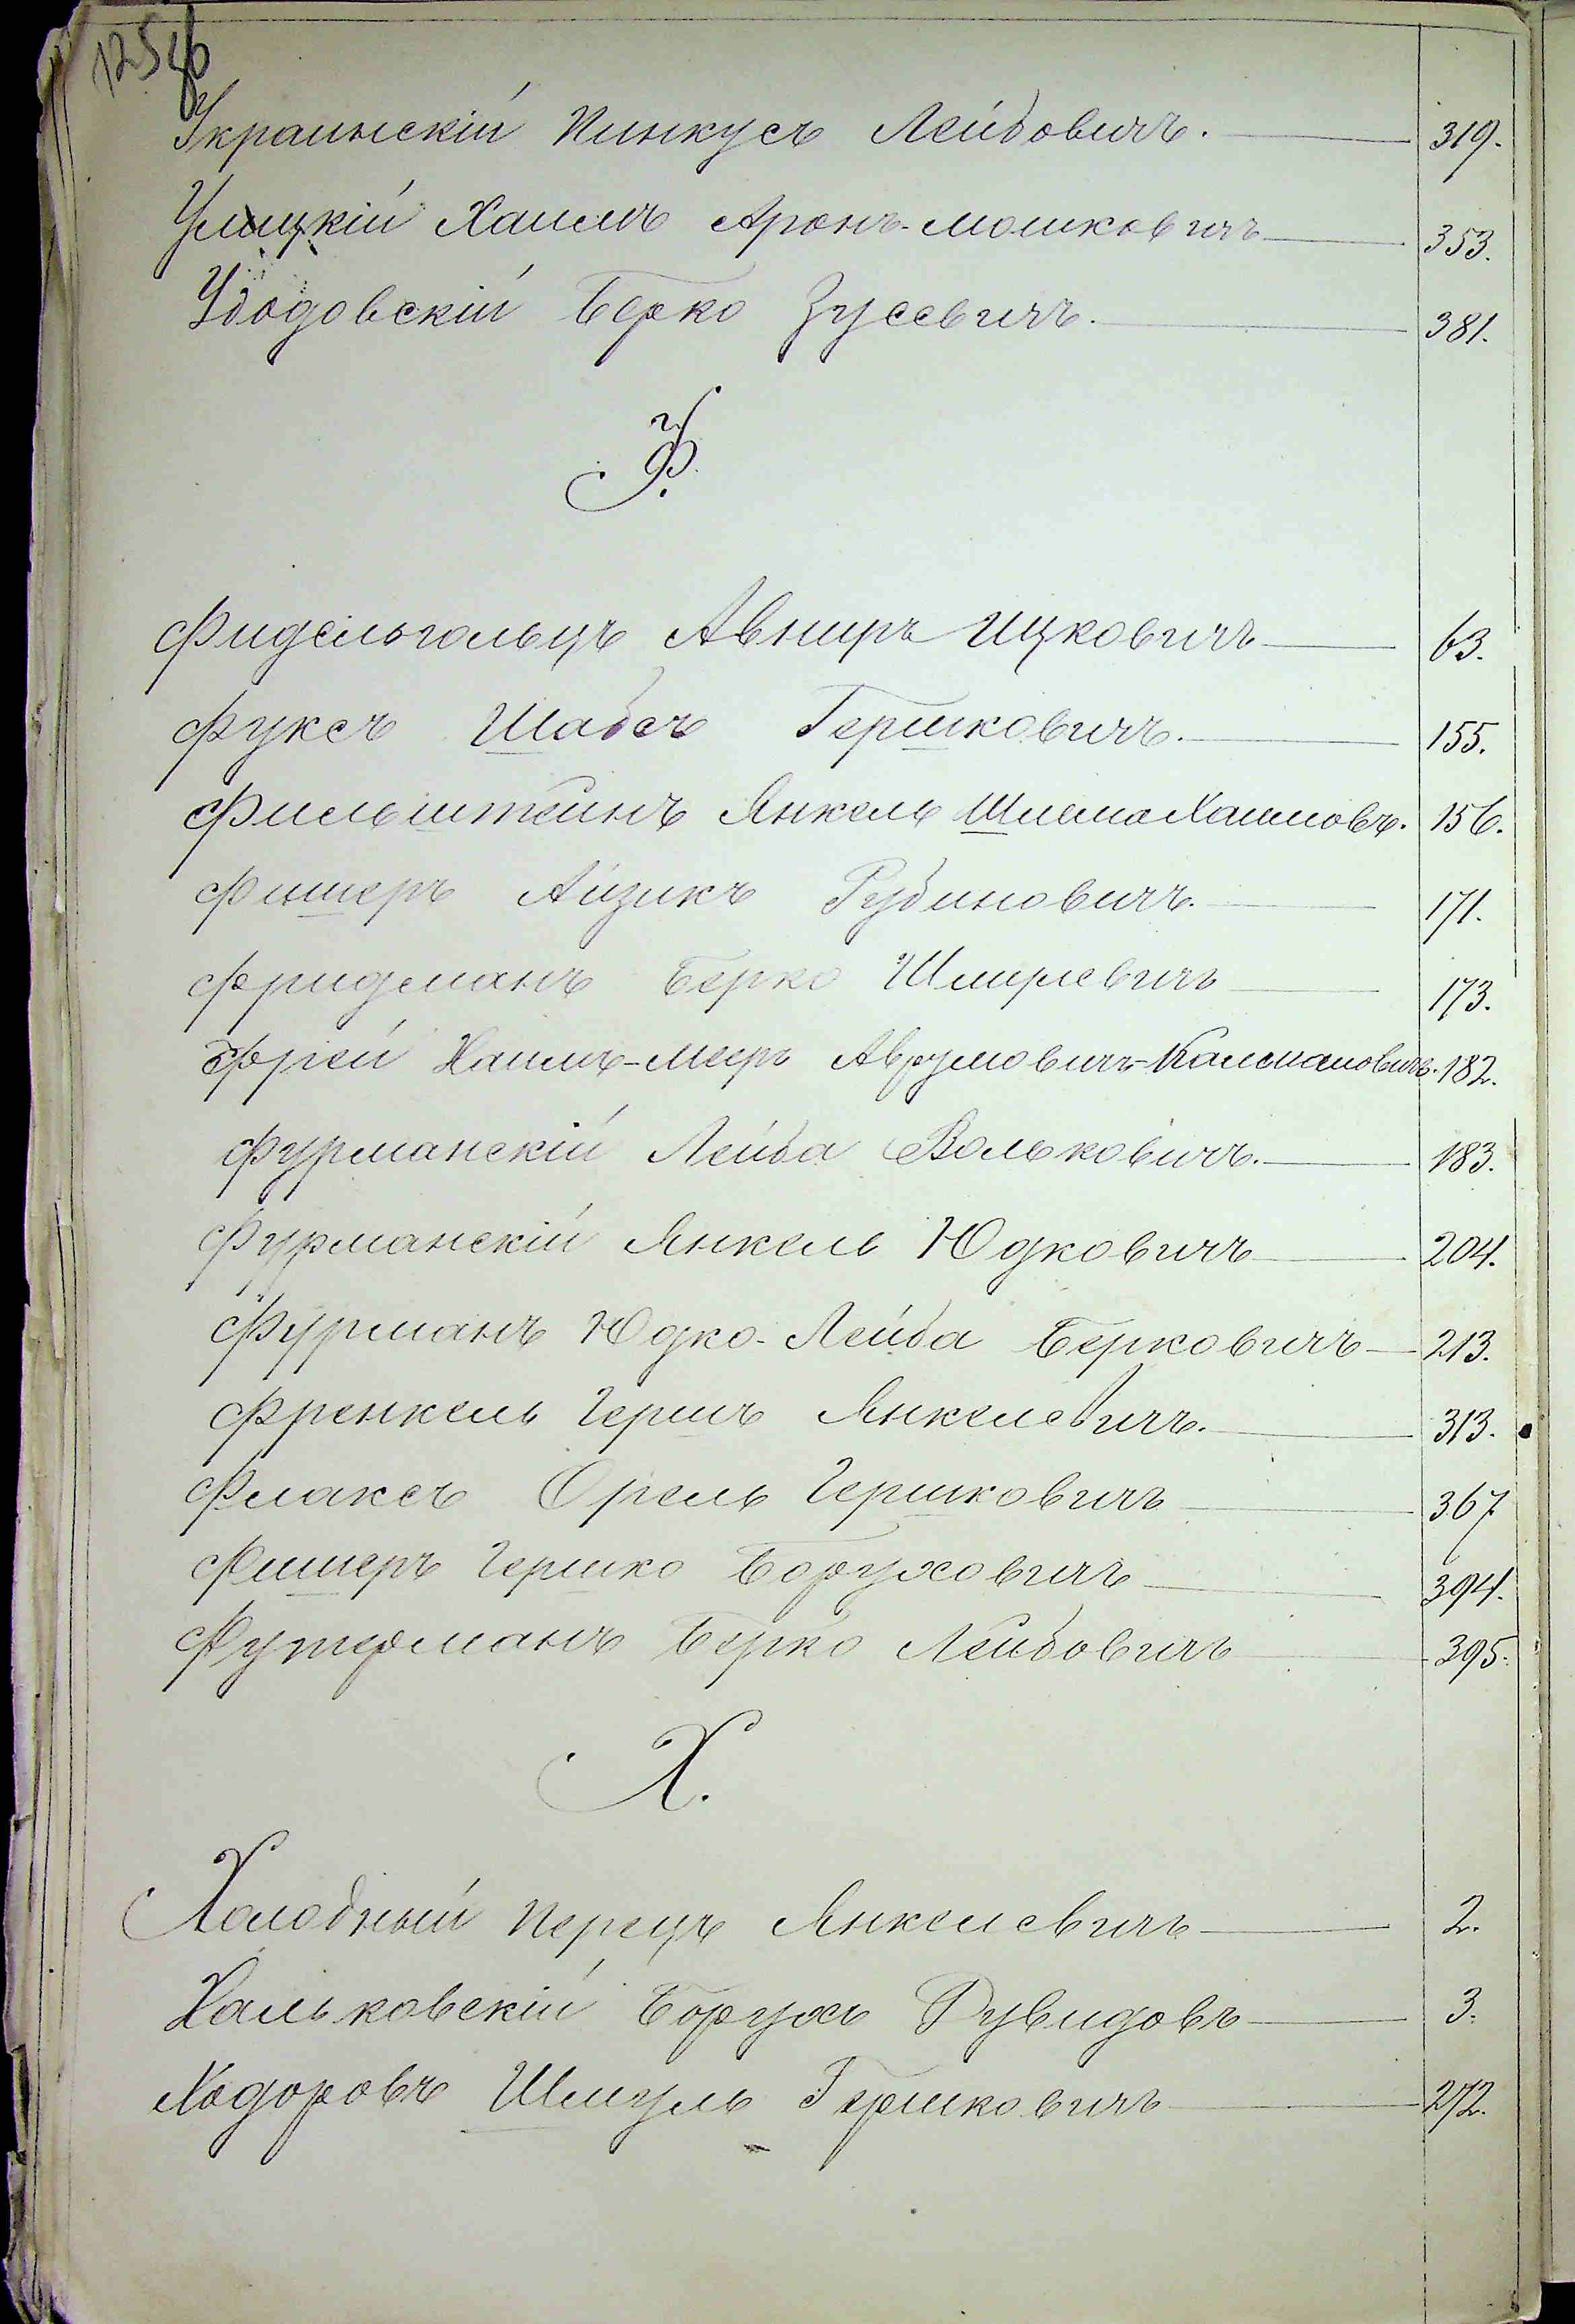 125 об
Украинскій Пинкусъ Лейбовичъ. 319.
Улицкій Хаимъ Аронъ-Мошковичъ 353.
Удодовскій Берко Зусевичъ. 381.
Ф.
Фидельгольцъ Авниръ Ицковичъ 63.
Фуксъ Шабсъ Гершковичъ. 155.
Фильштейнъ Янкель Шлема Хаимовъ. 156.
Фишеръ Айзикъ Рубиновичъ. 171.
Фридманъ Берко Шмулевичъ 173.
Фрей Хаимъ-Меер Аврумовичъ-Кальмановичъ. 182.
Фурманскій Лейба Вольковичъ. 183.
Фурманскій Янкель Юдковичъ 204.
Фурманъ Юдко-Лейба Берковичъ 213.
Френкель Гершъ Янкелевичъ. 313.
Флаксъ Орель Гершковичъ 367
Фишеръ Гершко Боруховичъ 394.
Футерманъ Берко Лейбовичъ 395.
Х.
Холодный Перецъ Янкелевичъ 2.
Хальковскій Борухъ Рувидовъ 3.
Ходоровъ Шмуль Гершковичъ 272.